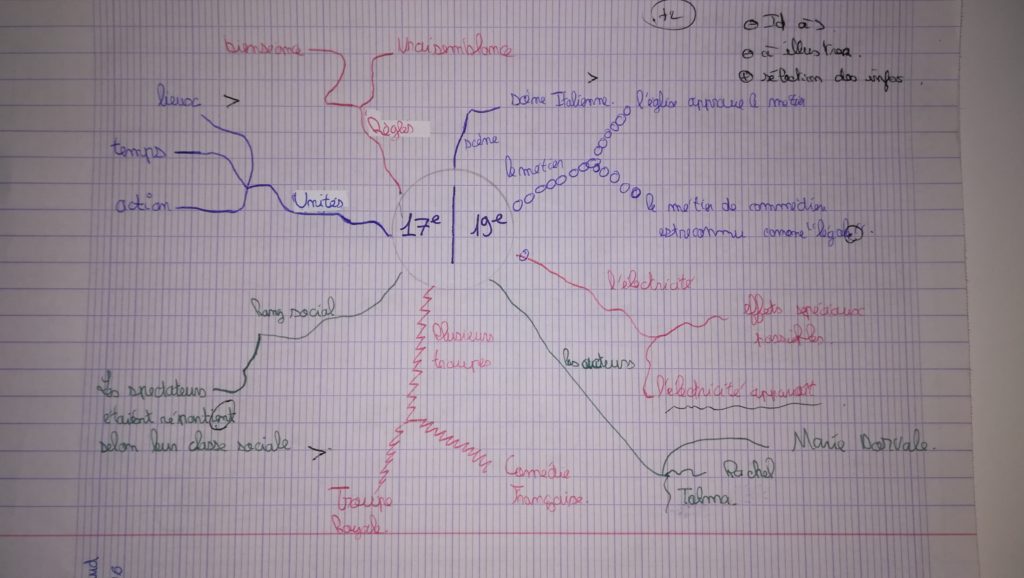 +2
Id à
à illustrer.
sélection des infos.
bienséance
Vraisemblance
Règles
lieux
temps
action
Unités
scène Italienne.
scène
le metier
l'église approuve le metier
le metier de commédien
est reconnu comme "légal".
17e
19e
Rang social
Les spectateurs
étaient répartient
selon leur classe sociale
Plusieurs
troupes
Troupe
Royale.
Comédie
Française.
l'électricité
effets spéciaux
possibles.
l'électricité apparait
les acteurs
Marie Dorvale.
Rachel
Talma.